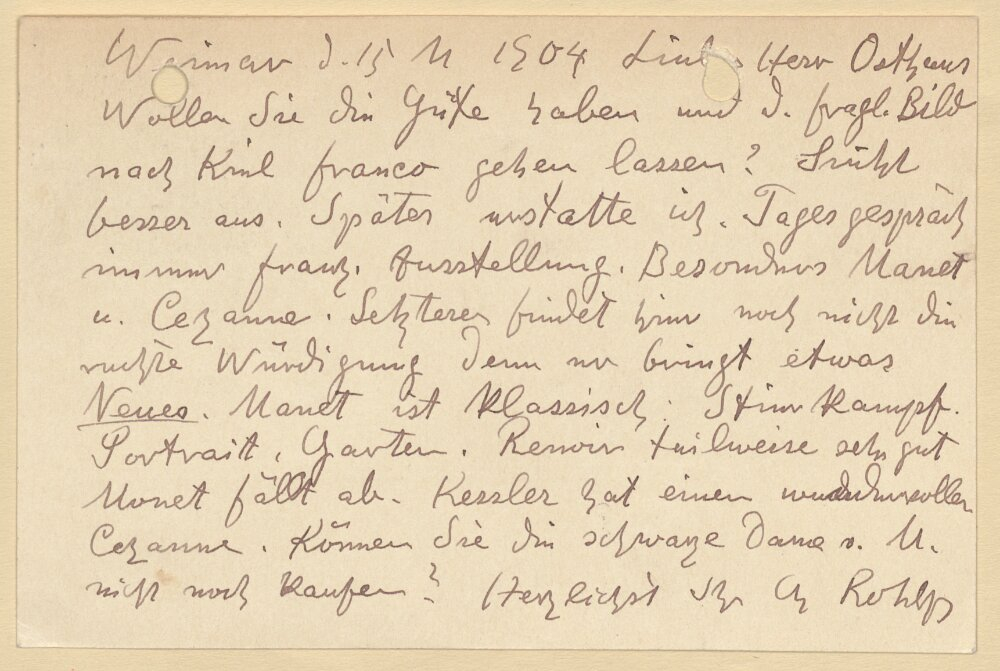 Weimar d. 15 11 1904 Lieber Herr Osthaus
Wollen Sie die Güte haben und d. fragl. Bild
nach Kiel franco gehen lassen? Sieht
besser aus. Später erstatte ich. Tagesgespräch
immer franz. Ausstellung. Besonders Manet
u. Cezanne. Letzterer findet hier noch nicht die
rechte Würdigung denn er bringt etwas
Neues. Manet ist klassisch. Stierkampf.
Portrait, Garten. Renoir teilweise sehr gut
Monet fällt ab. Kessler hat einen wundervollen
Cezanne. Können Sie die schwarze Dame v. M.
nicht noch kaufen? Herzlichst Ihr Ch Rohlfs